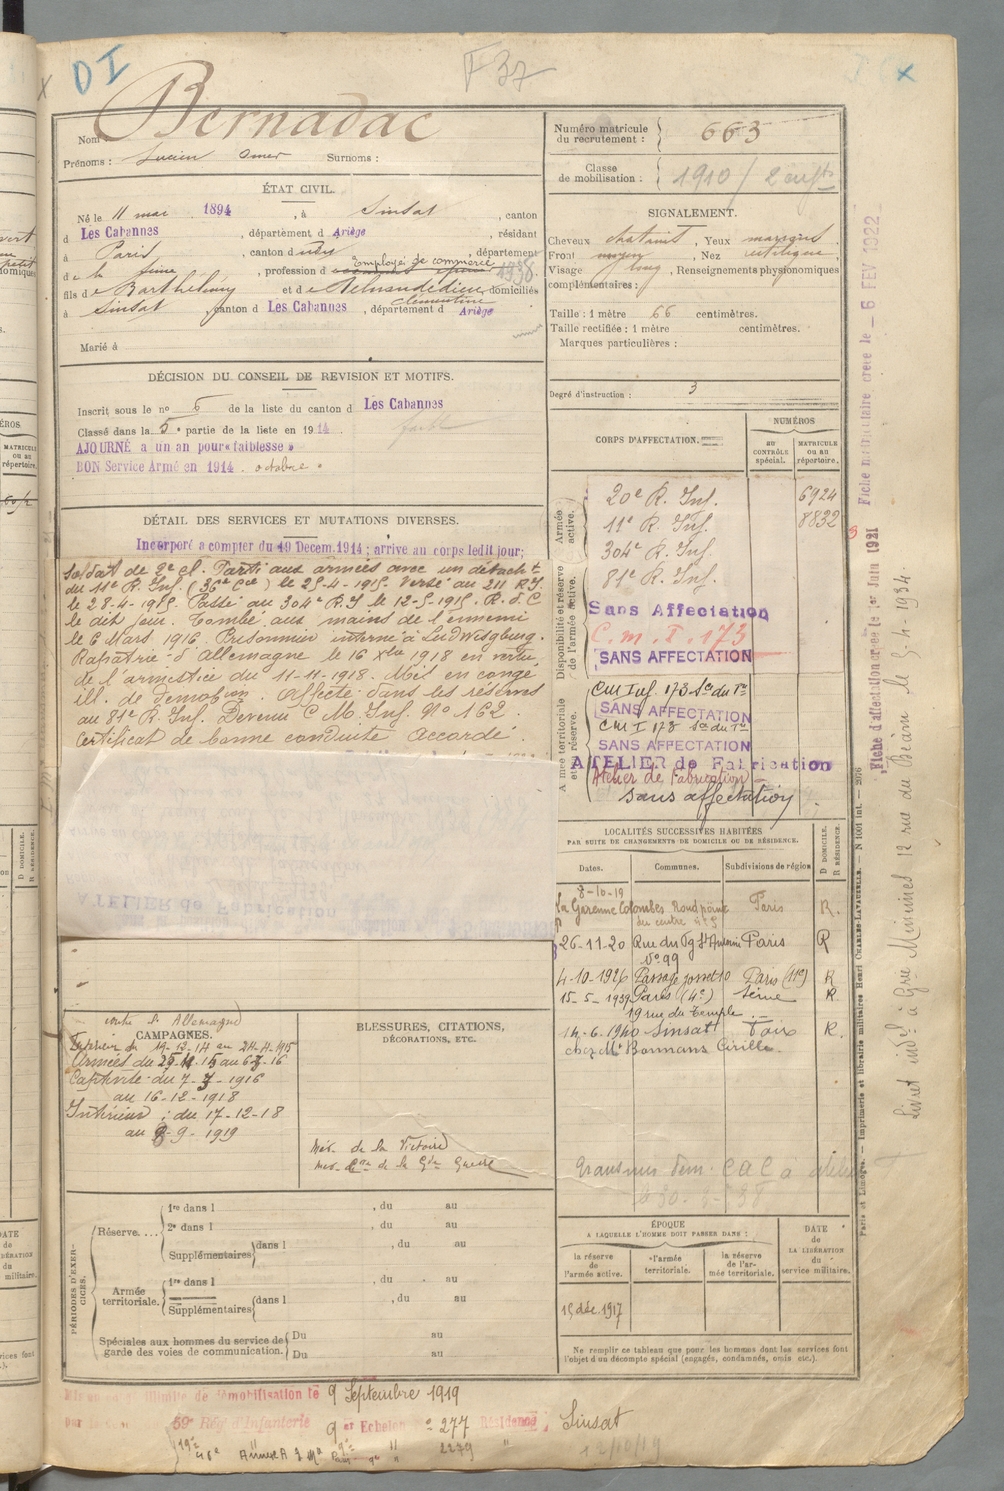 DI
F 37
Nom : Bernadac
Prénoms : Lucien Omer Surnoms :
Numéro matricule du recrutement : 663
Classe de mobilisation : 1910 /
ÉTAT CIVIL.
Né le 11 mai 1894, à Sinsat, canton
d Les Cabannes, département d Ariège, résidant
à Paris, canton d udry, département
de la Seine, profession d employé de commerce 1938
fils de Barthélémy et de domiciliés
Clémentine
à Sinsat, canton d Les Cabannes, département d Ariège
Marié à
SIGNALEMENT.
Cheveux chatains, Yeux marrons
Front moyen, Nez rectiligne
Visage long, Renseignements physionomiques
complémentaires :
Taille : 1 mètre 66 centimètres.
Taille rectifiée : 1 mètre centimètres.
Marques particulières :
Degré d'instruction : 3
DÉCISION DU CONSEIL DE REVISION ET MOTIFS.
Inscrit sous le no 6 de la liste du canton d Les Cabannes
Classé dans la 5e partie de la liste en 1914
AJOURNÉ a un an pour « faiblesse »
BON Service Armé en 1914. octobre.
DÉTAIL DES SERVICES ET MUTATIONS DIVERSES.
Incorporé a compter du 19 Decem. 1914 ; arrive au corps ledit jour ;
Soldat de 2e cl. Parti aux armées avec un détacht
du 11e R. Inf. (36e Cie) le 25-4-1915. Versé au 211 R.I.
le 28-4-1915. Passé au 304e R.I le 12-5-1915. R. d. C
le dit jour. Tombé aux mains de l'ennemi
le 6 Mars 1916. Prisonnier interné à Ludwigsburg.
Rapatrié d'Allemagne le 16 Xbre 1918 en vertu
de l'armistice du 11-11-1918. Mis en congé
ill. de démobon. Affecté dans les réserves
au 81e R. Inf. Devenu C M. Inf. No 162.
Certificat de bonne conduite accordé.
CORPS D'AFFECTATION.
NUMÉROS
AU CONTRÔLE spécial.
MATRICULE OU AU répertoire.
Armée active.
20e R. Inf. 6924
11e R. Inf. 8832
304e R. Inf.
Disponibilité et réserve de l'armée active.
81e R. Inf.
Sans Affectation
C. m. I. 173
SANS AFFECTATION
Armée territoriale et réserve.
CM Inf. 173 Son du Te
SANS AFFECTATION
CM I 173 Son du Te
SANS AFFECTATION
ATELIER de Fabrication
Atelier de Fabrication
sans affectation
LOCALITÉS SUCCESSIVES HABITÉES
PAR SUITE DE CHANGEMENTS DE DOMICILE OU DE RÉSIDENCE.
D DOMICILE. R RÉSIDENCE.
Dates. Communes. Subdivisions de région
8-10-19
La Garenne Colombes Rond point Paris R.
du centre
26-11-20 Rue du Fg St Antoine Paris R
No 99
4-10-1926 Passage Josset 10 Paris (11e) R
15-5-1939 Paris (4e) Seine R
19 rue du Temple
14-6-1940 Sinsat Foix R.
chez Mr Bonmans Cirille
contre l'Allemagne
CAMPAGNES.
Intérieur du 19-12-14 au 24-4-915
Armées du 25-4-15 au 6-3-16
Captivité du 7-3-1916
au 16-12-1918
Intérieur : du 17-12-18
au 8-9-1919
BLESSURES, CITATIONS,
DÉCORATIONS, ETC.
Med. de la Victoire
Med. Cve de la Gde Guerre
PÉRIODES D'EXERCICES.
Réserve....
1re dans l , du au
2e dans l , du au
Supplémentaires dans l , du au
Armée territoriale.
1re dans l , du au
Supplémentaires dans l , du au
Spéciales aux hommes du service de garde des voies de communication.
Du au
Du au
ÉPOQUE
A LAQUELLE L'HOMME DOIT PASSER DANS :
la réserve de l'armée active.
l'armée territoriale.
la réserve de l'armée territoriale.
DATE de LA LIBÉRATION du service militaire.
15 déc. 1917
Ne remplir ce tableau que pour les hommes dont les services font
l'objet d'un décompte spécial (engagés, condamnés, omis etc.).
illimité de démobilisation le 9 Septembre 1919
59e Rég d'Infanterie 9e Echelon no 277 Résidence Sinsat
2279
12/10/19
Fiche matriculaire créée le 6 FEV 1922
Fiche d'affectation créée le 1er Juin 1921
Livret indel à Gnie Minimes 12 rue du Béarn le 5-4-1934.
Paris et Limoges. — Imprimerie et librairie militaires Henri CHARLES-LAVAUZELLE. — N 1001 int. — 2076